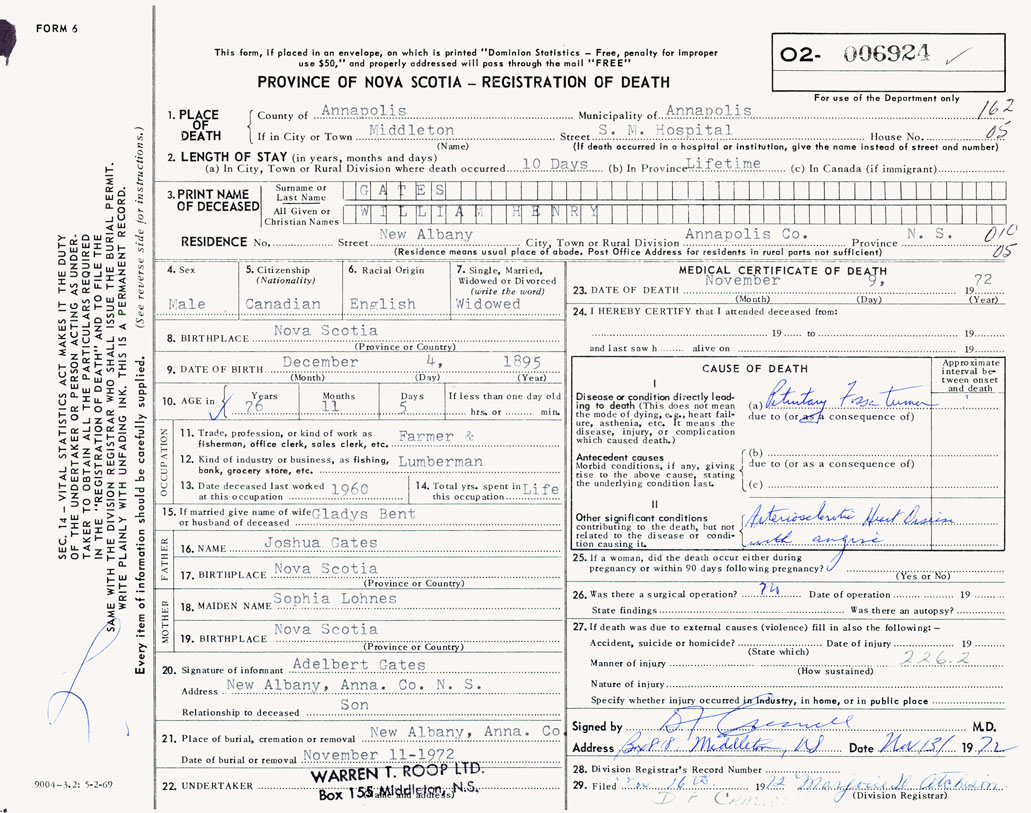 FORM 6
This form, if placed in an envelope, on which is printed "Dominion Statistics – Free, penalty for improper
use $50," and properly addressed will pass through the mail "FREE"
PROVINCE OF NOVA SCOTIA – REGISTRATION OF DEATH
02- 006924
For use of the Department only
162
05
1. PLACE OF DEATH County of Annapolis Municipality of Annapolis
If in City or Town Middleton Street S. M. Hospital House No.
(Name) (If death occurred in a hospital or institution, give the name instead of street and number)
2. LENGTH OF STAY (in years, months and days)
(a) In City, Town or Rural Division where death occurred 10 Days (b) In Province Lifetime (c) In Canada (if immigrant)
3. PRINT NAME OF DECEASED Surname or Last Name GATES
All Given or Christian Names WILLIAM HENRY
RESIDENCE No. Street New Albany City, Town or Rural Division Annapolis Co. Province N. S. 010
(Residence means usual place of abode. Post Office Address for residents in rural parts not sufficient) 05
4. Sex
Male
5. Citizenship
(Nationality)
Canadian
6. Racial Origin
English
7. Single, Married,
Widowed or Divorced
(write the word)
Widowed
8. BIRTHPLACE Nova Scotia
(Province or Country)
9. DATE OF BIRTH December 4, 1895
(Month) (Day) (Year)
10. AGE in Years Months Days If less than one day old
76 11 5 hrs. or min.
OCCUPATION
11. Trade, profession, or kind of work as
fisherman, office clerk, sales clerk, etc. Farmer &
12. Kind of industry or business, as fishing,
bank, grocery store, etc. Lumberman
13. Date deceased last worked
at this occupation 1960
14. Total yrs. spent in
this occupation Life
15. If married give name of wife
or husband of deceased Gladys Bent
FATHER
16. NAME Joshua Gates
17. BIRTHPLACE Nova Scotia
(Province or Country)
MOTHER
18. MAIDEN NAME Sophia Lohnes
19. BIRTHPLACE Nova Scotia
(Province or Country)
20. Signature of informant Adelbert Gates
Address New Albany, Anna. Co. N. S.
Relationship to deceased Son
21. Place of burial, cremation or removal New Albany, Anna. Co
Date of burial or removal November 11-1972
22. UNDERTAKER WARREN T. ROOP LTD.
Box 155 Middleton, N.S.
(Name and address)
MEDICAL CERTIFICATE OF DEATH
23. DATE OF DEATH November 9, 1972
(Month) (Day) (Year)
24. I HEREBY CERTIFY that I attended deceased from:
19 to 19
and last saw h alive on 19
CAUSE OF DEATH
Approximate
interval be-
tween onset
and death
I
Disease or condition directly lead-
ing to death (This does not mean
the mode of dying, e.g., heart fail-
ure, asthenia, etc. It means the
disease, injury, or complication
which caused death.)
(a) Pituitary Fossa Tumor
due to (or as a consequence of)
Antecedent causes
Morbid conditions, if any, giving
rise to the above cause, stating
the underlying condition last.
(b)
due to (or as a consequence of)
(c)
II
Other significant conditions
contributing to the death, but not
related to the disease or condi-
tion causing it.
Arteriosclerotic Heart Disease
with angina
25. If a woman, did the death occur either during
pregnancy or within 90 days following pregnancy?
(Yes or No)
26. Was there a surgical operation? no Date of operation 19
State findings Was there an autopsy?
27. If death was due to external causes (violence) fill in also the following: –
Accident, suicide or homicide? Date of injury 19
(State which)
226.2
Manner of injury
(How sustained)
Nature of injury
Specify whether injury occurred in Industry, in home, or in public place
Signed by M.D.
Address Middleton, NS Date Nov 13/ 1972
28. Division Registrar's Record Number
29. Filed 16th 1972 Marjorie Atchison
(Division Registrar)
SEC. 14 – VITAL STATISTICS ACT MAKES IT THE DUTY
OF THE UNDERTAKER OR PERSON ACTING AS UNDER-
TAKER TO OBTAIN ALL THE PARTICULARS REQUIRED
IN THE "REGISTRATION OF DEATH" AND TO FILE THE
SAME WITH THE DIVISION REGISTRAR WHO SHALL ISSUE THE BURIAL PERMIT.
WRITE PLAINLY WITH UNFADING INK. THIS IS A PERMANENT RECORD.
Every item of information should be carefully supplied. (See reverse side for instructions.)
9004-3.2: 5-2-69